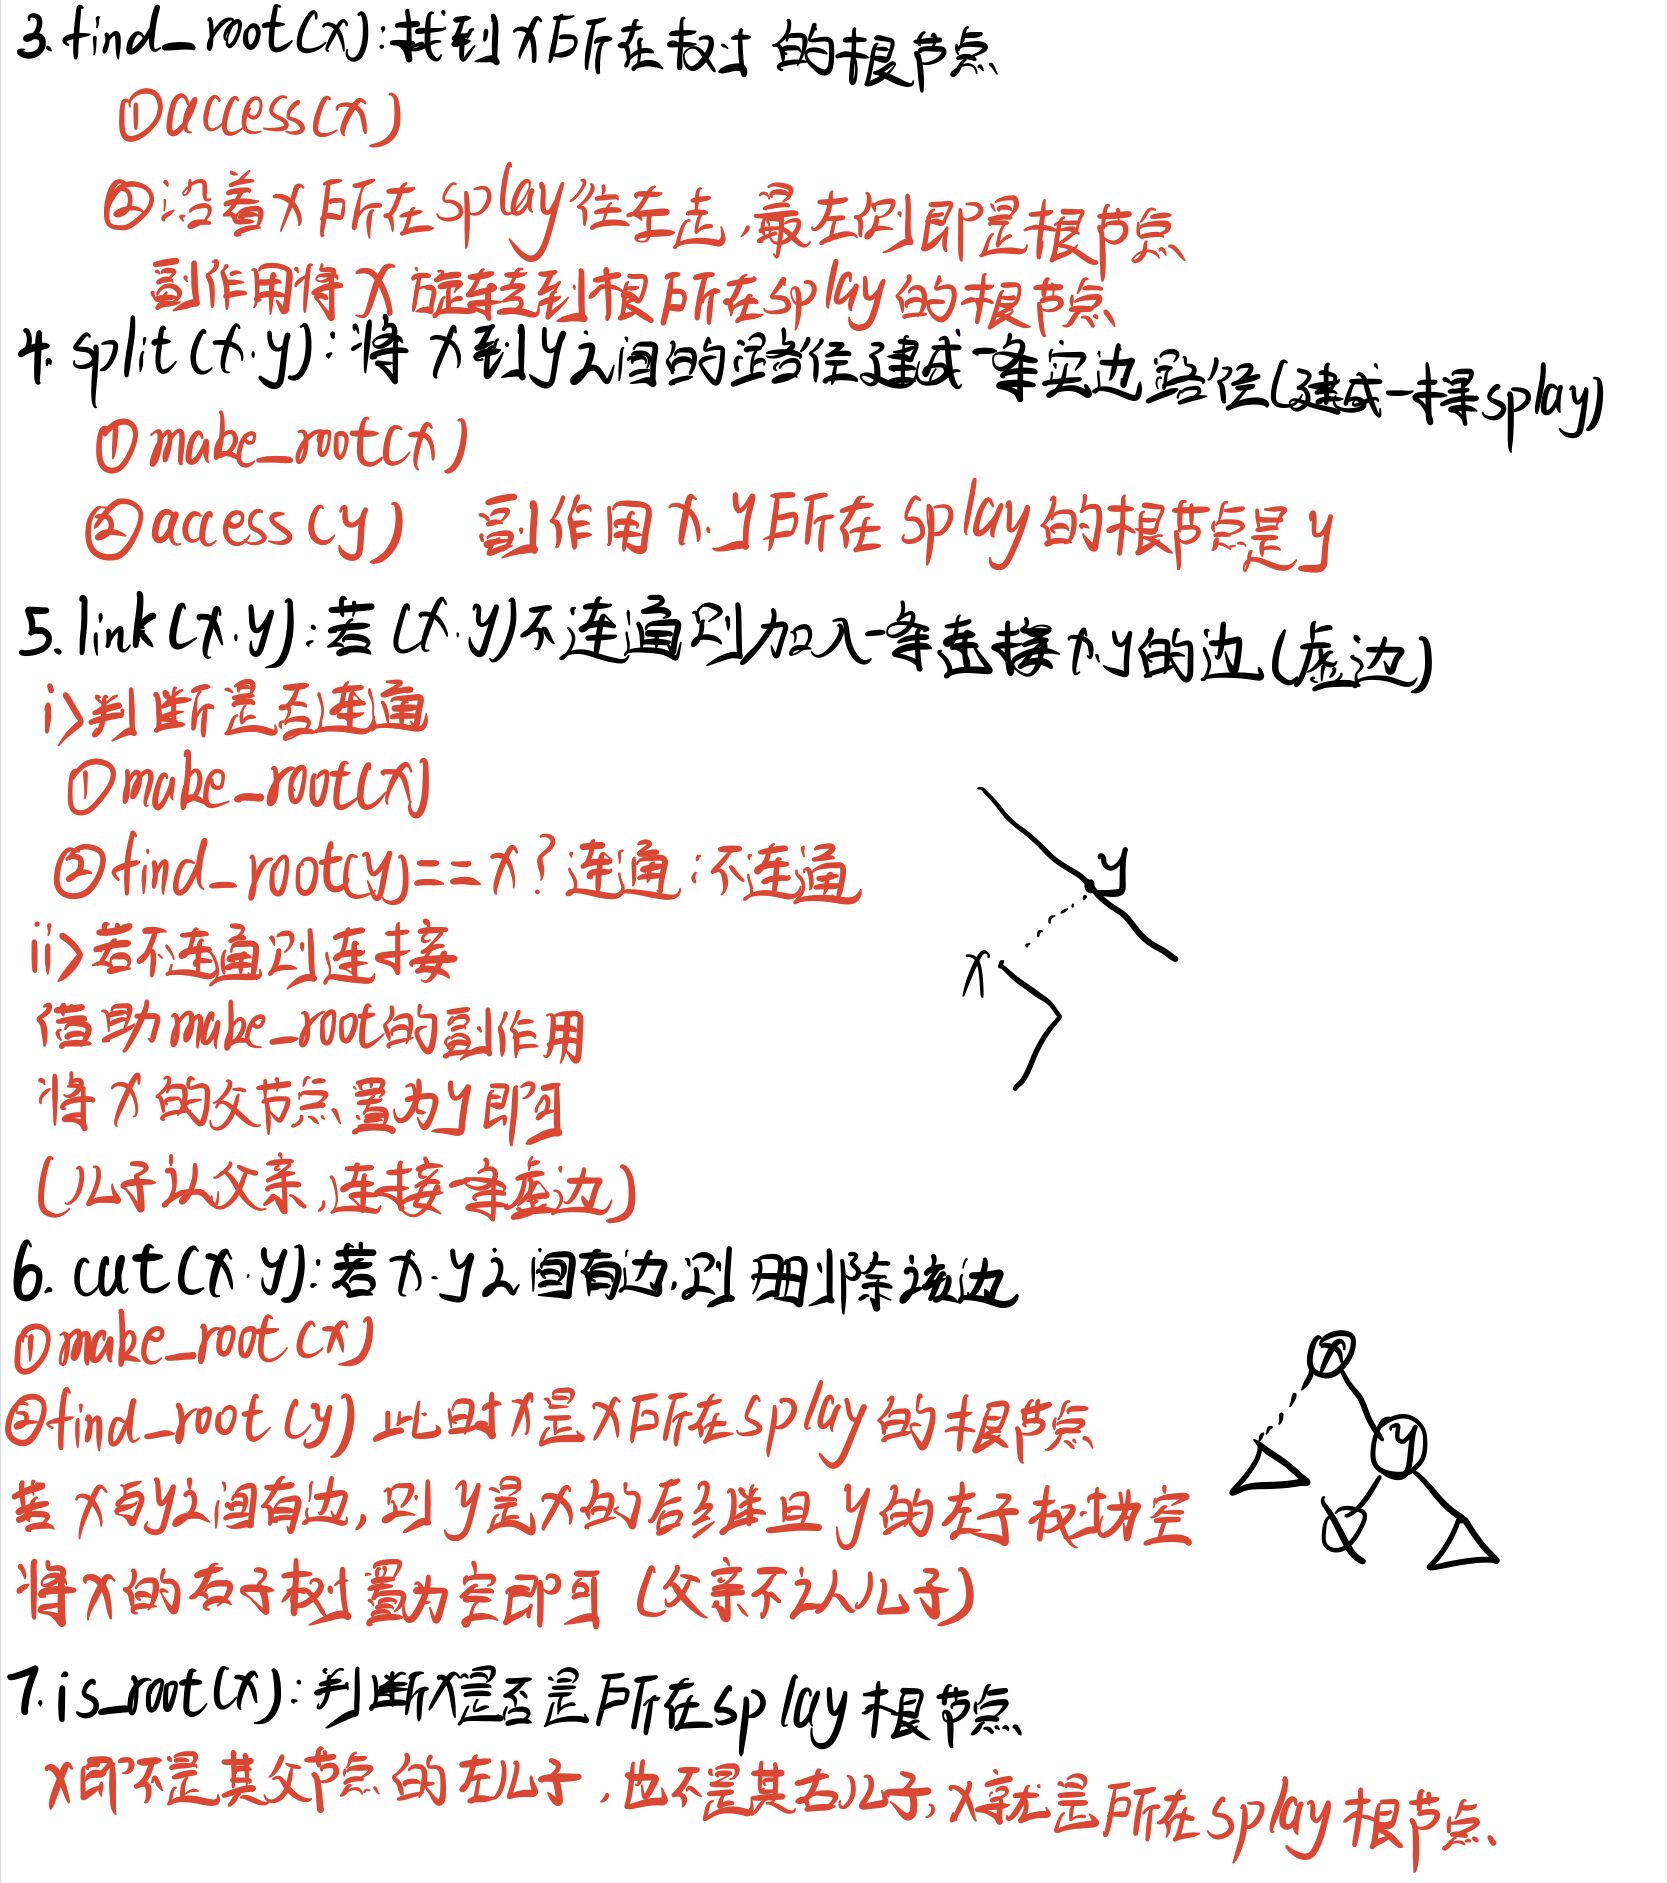 3. find_root(x):找到x所在树的根节点
①access(x)
②沿着x所在splay往左走,最左侧即是根节点
副作用将x旋转到根所在splay的根节点
4. split(x.y):将x到y之间的路径建成一条实边路径(建成一棵splay)
①make_root(x)
②access(y) 副作用x.y所在splay的根节点是y
5. link(x.y):若(x.y)不连通则加入一条连接x.y的边(虚边)
i>判断是否连通
①make_root(x)
②find_root(y)==x?连通:不连通
y
ii>若不连通则连接
x
借助make_root的副作用
将x的父节点置为y即可
(儿子认父亲,连接一条虚边)
6. cut(x.y):若x.y之间有边,则删除该边
①make_root(x)
x
②find_root(y)此时x是x所在splay的根节点
y
若x与y之间有边,则y是x的后继且y的左子树为空
将x的右子树置为空即可(父亲不认儿子)
7. is_root(x):判断x是否是所在splay根节点
x即不是其父节点的左儿子,也不是其右儿子,x就是所在splay根节点